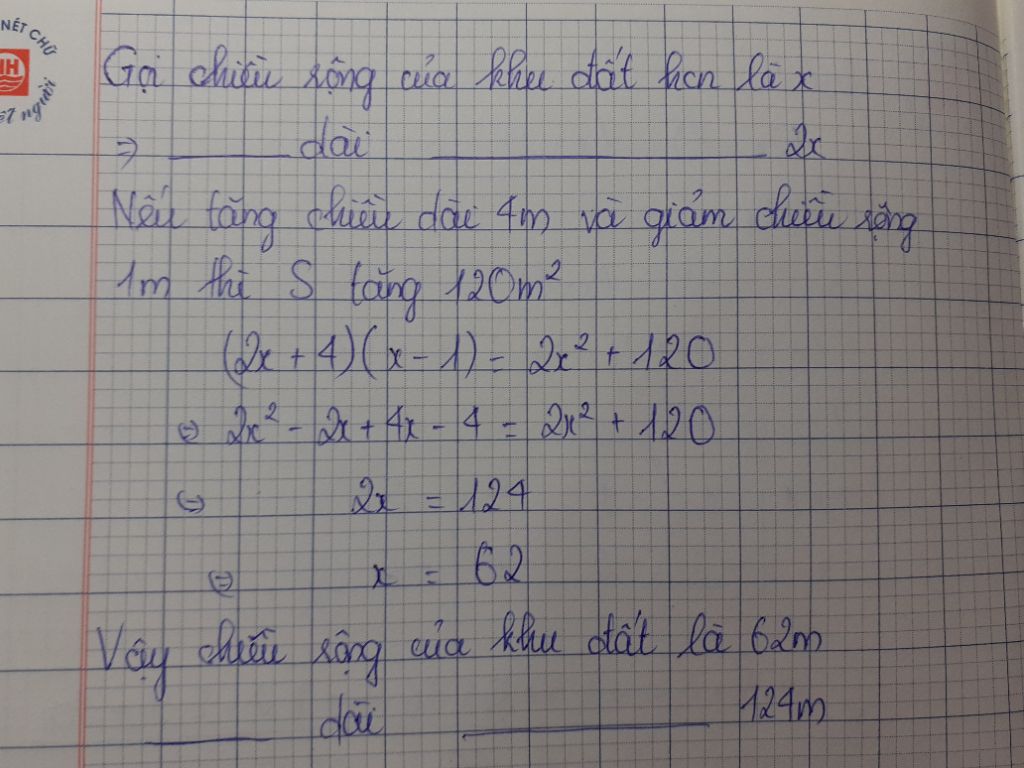 NÉT CHỮ
NH
ết người
Gọi chiều rộng của khu đất hcn là x
⇒ ______ dài ______________ 2x
Nếu tăng chiều dài 4m và giảm chiều rộng
1m thì S tăng 120m²
(2x + 4)(x - 1) = 2x² + 120
⇔ 2x² - 2x + 4x - 4 = 2x² + 120
⇔ 2x = 124
⇔ x = 62
Vậy chiều rộng của khu đất là 62m
______ dài ______________ 124m